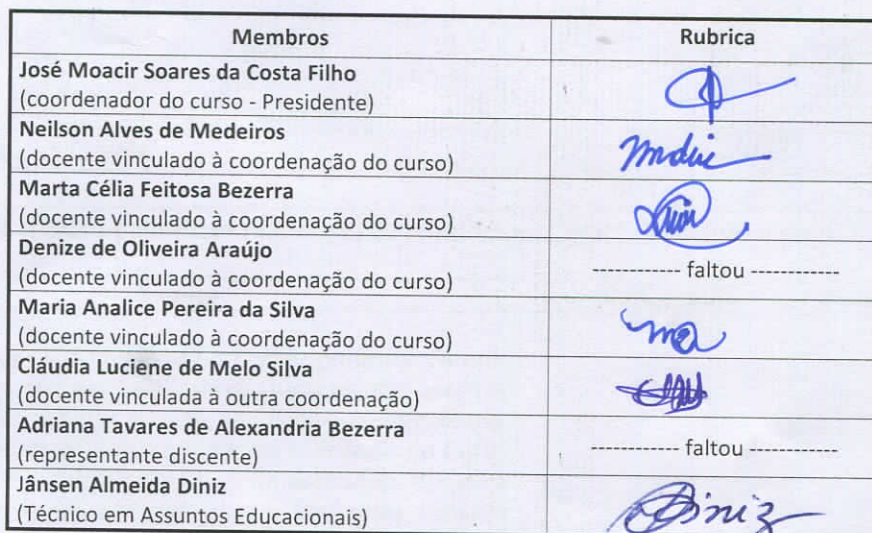 Membros Rubrica
José Moacir Soares da Costa Filho
(coordenador do curso - Presidente)
Neilson Alves de Medeiros
(docente vinculado à coordenação do curso)
Marta Célia Feitosa Bezerra
(docente vinculado à coordenação do curso)
Denize de Oliveira Araújo
(docente vinculado à coordenação do curso) ------------ faltou ------------
Maria Analice Pereira da Silva
(docente vinculado à coordenação do curso)
Cláudia Luciene de Melo Silva
(docente vinculada à outra coordenação)
Adriana Tavares de Alexandria Bezerra
(representante discente) ------------ faltou ------------
Jânsen Almeida Diniz
(Técnico em Assuntos Educacionais) Diniz